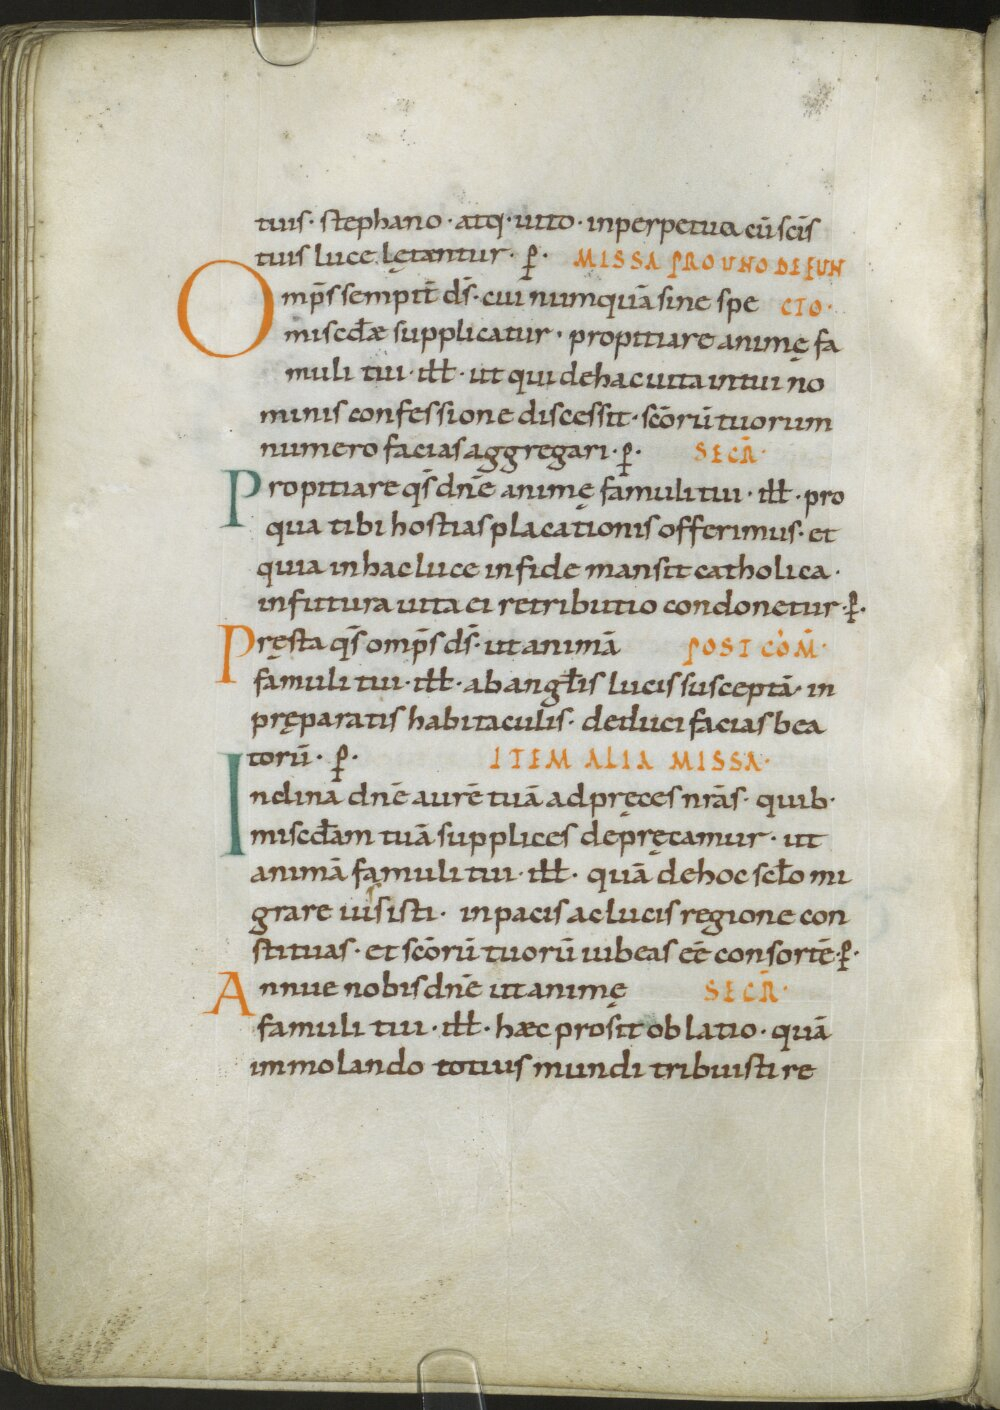 tuis· stephano· atq· uito· inperpetua cū sc̄is
tuis luce lętantur· p̲· MISSA PRO UNO DEFUN
Omp̄s sempit̄ ds̄· cui numquā sine spe CTO·
misc̄dæ supplicatur· propitiare animę fa
muli tui· ill̄· ut qui dehac uita intui no
minis confessione discessit· sc̄orū tuorum
numero facias aggregari· p̲· SECR̄·
Propitiare qs̄ dn̄e animę famuli tui· ill̄· pro
qua tibi hostias placationis offerimus· et
quia inhac luce infide mansit catholica·
infutura uita ei retributio condonetur· p̲·
Pręsta qs̄ omp̄s ds̄· ut animā POST COM̄·
famuli tui· ill̄· ab angl̄is lucis susceptā· in
pręparatis habitaculis· deduci facias bea
torū· p̲· ITEM ALIA MISSA·
Inclina dn̄e aurē tuā ad pręces nr̄as· quib·
misc̄dam tuā supplices depręcamur· ut
animā famuli tui· ill̄· quā dehoc scl̄o mi
grare iusisti· inpacis ac lucis regione con
stituas· et sc̄orū tuorū iubeas eē consortē· p̲·
Annue nobis dn̄e ut animę SECR̄·
famuli tui· ill̄· hæc prosit oblatio· quā
immolando totius mundi tribuisti re